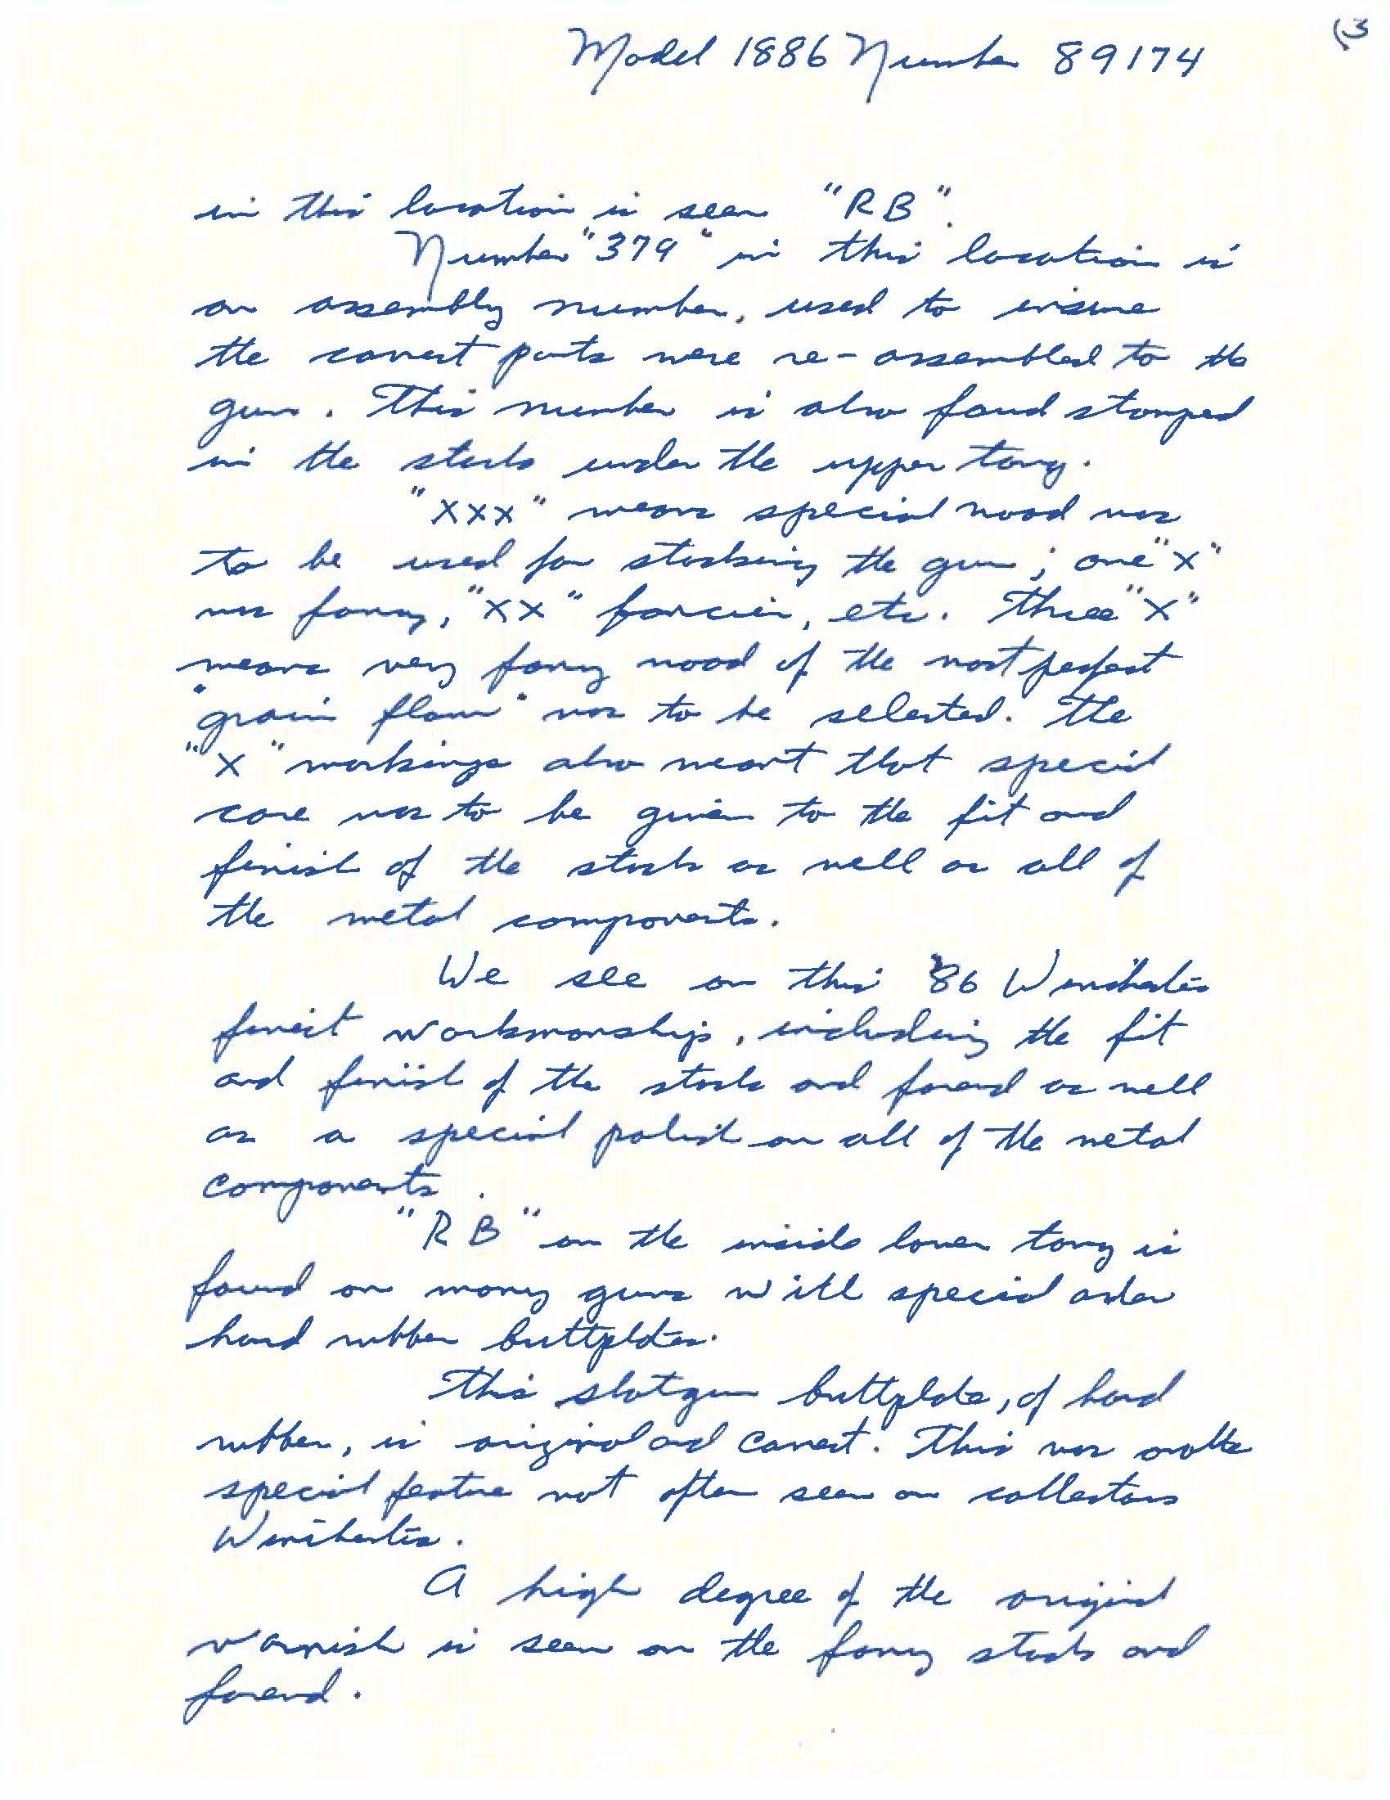 (3
Model 1886 Number 89174
in this location is seen "RB".
Number "379" in this location is
an assembly number, used to ensure
the correct parts were re-assembled to the
gun. This number is also found stamped
in the stock under the upper tang.
"XXX" means special wood was
to be used for stocking the gun; one "X"
was fancy, "XX" fancier, etc. Three "X"
means very fancy wood of the most perfect
"grain flow" was to be selected. The
"X" markings also meant that special
care was to be given to the fit and
finish of the stock as well as all of
the metal components.
We see on this '86 Winchesters
finest workmanship, including the fit
and finish of the stock and forend as well
as a special polish on all of the metal
components.
"RB" on the inside lower tang is
found on many guns with special order
hard rubber buttplates.
This shotgun buttplate, of hard
rubber, is original and correct. This was another
special feature not often seen on collectors
Winchesters.
A high degree of the original
varnish is seen on the fancy stock and
forend.